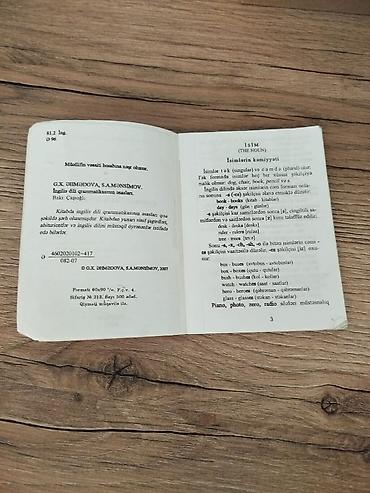 81.2 İng.
Ə 96
Müəllifin vəsaiti hesabına nəşr olunur.
G.X. ƏHMƏDOVA, S.A.MƏNSİMOV.
İngilis dili qrammatikasının əsasları.
Bakı: Çaşıoğlı.
Kitabda ingilis dili qrammatikasının əsasları qısa
şəkildə şərh olunmuşdur. Kitabdan yuxarı sinif şagirdləri,
abituriyentlər və ingilis dilini müstəqil öyrənənlər istifadə
edə bilərlər.
4602020102—417
082-07
© G.X. ƏHMƏDOVA, S.A.MƏNSİMOV, 2007
Formatı 60x90
Sifariş № 213. Sayı 500 ədəd.
Qiyməti müqavilə ilə.
İSİM
(THE NOUN)
İsimlərin kəmiyyəti
İsimlər tək (singular) və cəmdə (plural) olur.
Tək formada isimlər heç bir xüsusi şəkilçiyə
malik olmur: dog, chair, book, pencil və s.
İngilis dilində əksər isimlərin cəm forması onla-
rın sonuna -s (-es) şəkilçisi əlavə etməklə düzəlir:
book - books (kitab - kitablar)
day - days (gün - günlər)
-s şəkilçisi kar samitlərdən sonra [s], cingiltili sa-
mitlərdən və saitlərdən sonra [z] kimi tələffüz edilir:
desk - desks [desks]
ruler - rulers [ruləz]
tree - trees [tri:z]
Sonu -s, -x, -ch, -sh, -o ilə bitən isimlərin cəmi -
es şəkilçisi vasitəsilə düzəlir. -es şəkilçisi [iz] oxu-
nur:
bus - buses (avtobus - avtobuslar)
box - boxes (qutu - qutular)
bush - bushes (kol - kollar)
watch - watches (saat - saatlar)
hero - heroes (qəhrəman - qəhrəmanlar)
glass - glasses (stəkan - stəkanlar)
Piano, photo, zero, radio sözləri müstəsnalıq
3